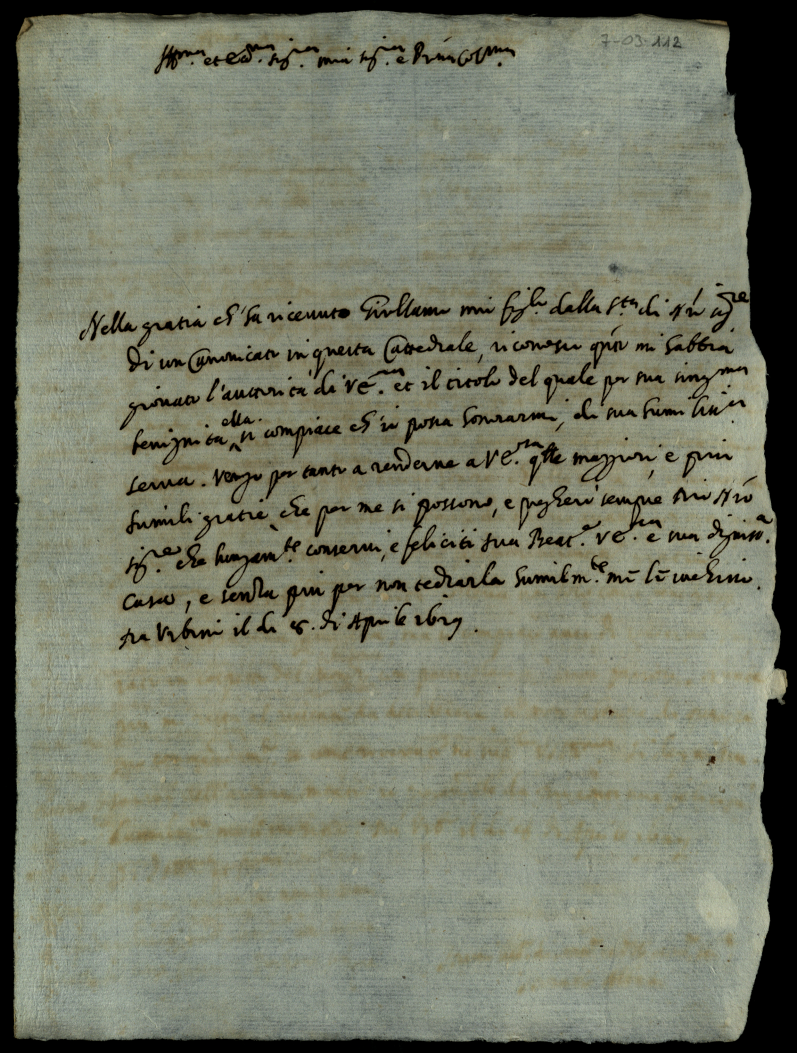 7-03-112
Ill.mo et Ecc.mo sig.re mio sig.re e Pron Col.mo
Nella gratia ch'ha ricevuto Girolamo mio figlo dalla S.tà di Nro sig.re
di un Canonicato in questa Cattedrale, riconosco quto mi habbia
giovato l'auttorità di V.E.ma et il titolo del quale per sua
benignità ella si compiace ch'io possa honorarmi, di sua humiliss.a
serva. Vengo per tanto a renderne a V.E.ma qlle maggiori, e più
humili gratie, che per me si possono, e pregherò sempre Dio Nro
sig.re che lungam.te conservi, e feliciti sua Beat.e V.E.ma e sua digniss.a
Casa, e senza più per non tediarla humilm.te me le inchino.
Da Urbino il di 8. di Aprile 1629.